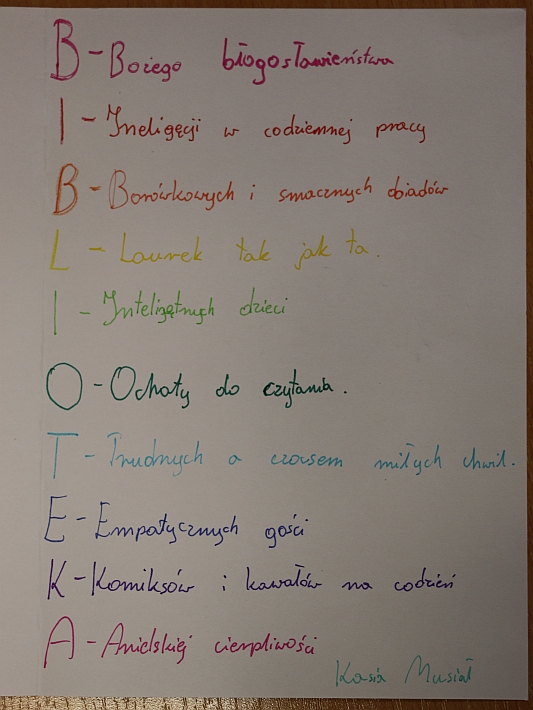 B - Bożego błogosławieństwa
I - Ineligęcji w codziennej pracy
B - Borówkowych i smacznych obiadów
L - Laurek tak jak ta.
I - Inteligętnych dzieci
O - Ochoty do czytania.
T - Trudnych a czasem miłych chwil.
E - Empatycznych gości
K - Komiksów i kawałów na codzień
A - Anielskiej cierpliwości
Kasia Musiał